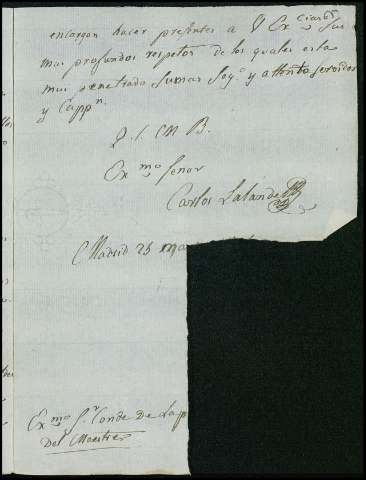 encargan hacer presentes a V Ex^cias sus
mas profundos respetos de los quales esta
mas penetrado su mas Seg^o y attento servidor
y Capp^n.
Q. S. M B.
Ex^mo Señor
Carlos Lalande
Madrid 25 Mar
Ex^mo S^r Conde De Lap
Del Maestre